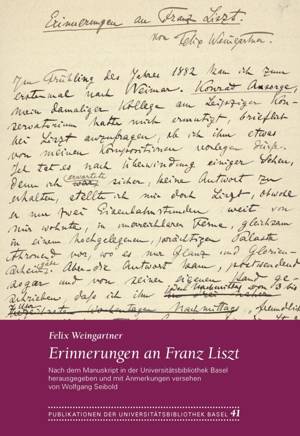 Erinnerungen an Franz Liszt.
von Felix Weingartner.
Im Frühling des Jahres 1882 kam ich zum
erstenmal nach Weimar. Konrad Ansorge,
mein damaliger Kollege am Leipziger Kon-
servatorium hatte mich ermutigt, brieflich
bei Liszt anzufragen, ob ich ihm etwas
von meinen Kompositionen vorlegen dürfe.
Ich tat es nach Überwindung einiger Scheu,
denn ich erwartete sicher, keine Antwort zu
erhalten, stellte ich mir doch Liszt, obwohl
er nur zwei Eisenbahnstunden weit von
mir wohnte, in unerreichbarer Ferne, gleichsam
in einem hochgelegenen, prächtigen Palaste
thronend vor, wo es nur Glanz und Glorien
Aber die Antwort kam, postwendend
sogar und von seiner eigenen Hand ge-
schrieben, dass ich ihn
Nachmittags, freundlich
Felix Weingartner
Erinnerungen an Franz Liszt
Nach dem Manuskript in der Universitätsbibliothek Basel
herausgegeben und mit Anmerkungen versehen
von Wolfgang Seibold
PUBLIKATIONEN DER UNIVERSITÄTSBIBLIOTHEK BASEL 41